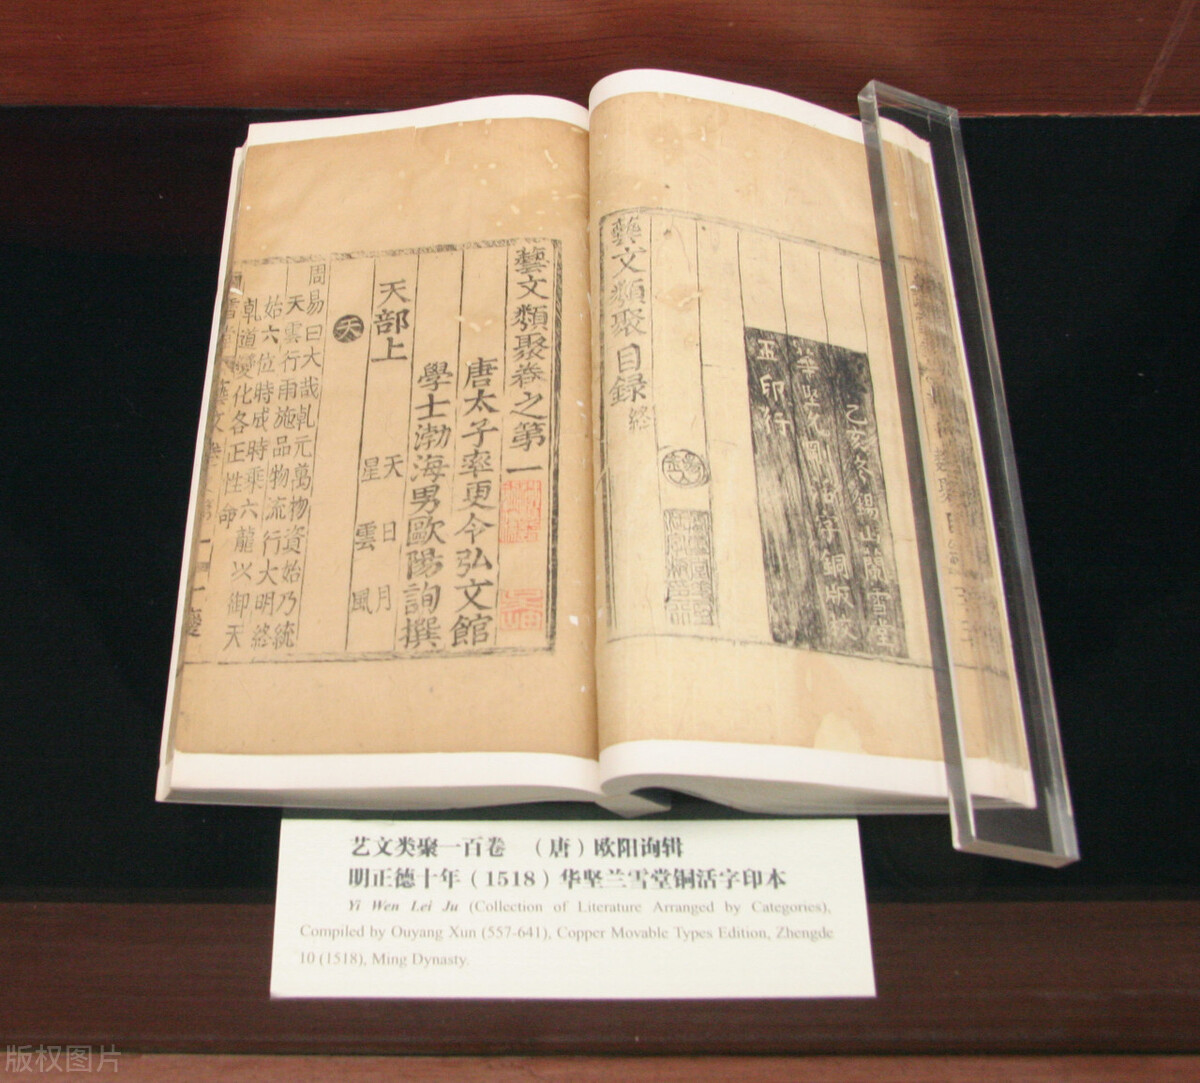 乙亥冬錫山蘭雪堂
華堅允剛活字銅版校
正印行
錫山
藝文類聚目録 終
藝文類聚卷之第一
唐太子率更令弘文館
學士渤海男歐陽詢撰
天部上
天 日 月
星 雲 風
天
周易曰大哉乹元萬物資始乃統
天雲行雨施品物流行大明終
始六位時成時乘六龍以御天
乹道變化各正性命
艺文类聚一百卷 （唐）欧阳询辑
明正德十年（1518）华坚兰雪堂铜活字印本
Yi Wen Lei Ju (Collection of Literature Arranged by Categories),
Compiled by Ouyang Xun (557-641), Copper Movable Types Edition, Zhengde
10 (1518), Ming Dynasty.
版权图片